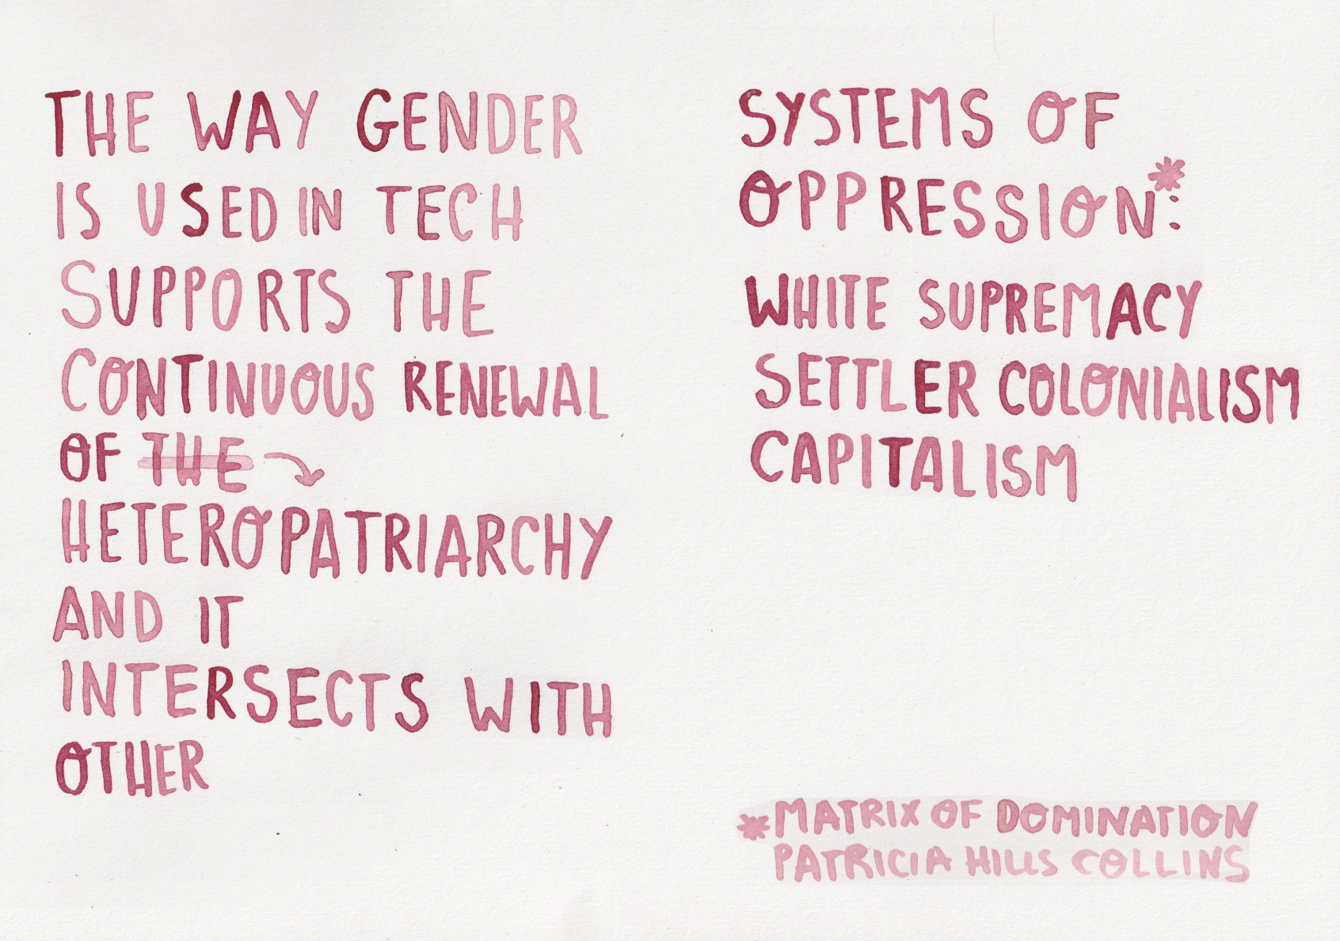 THE WAY GENDER
IS USED IN TECH
SUPPORTS THE
CONTINUOUS RENEWAL
OF THE
HETEROPATRIARCHY
AND IT
INTERSECTS WITH
OTHER
SYSTEMS OF
OPPRESSION*:
WHITE SUPREMACY
SETTLER COLONIALISM
CAPITALISM
*MATRIX OF DOMINATION
PATRICIA HILLS COLLINS